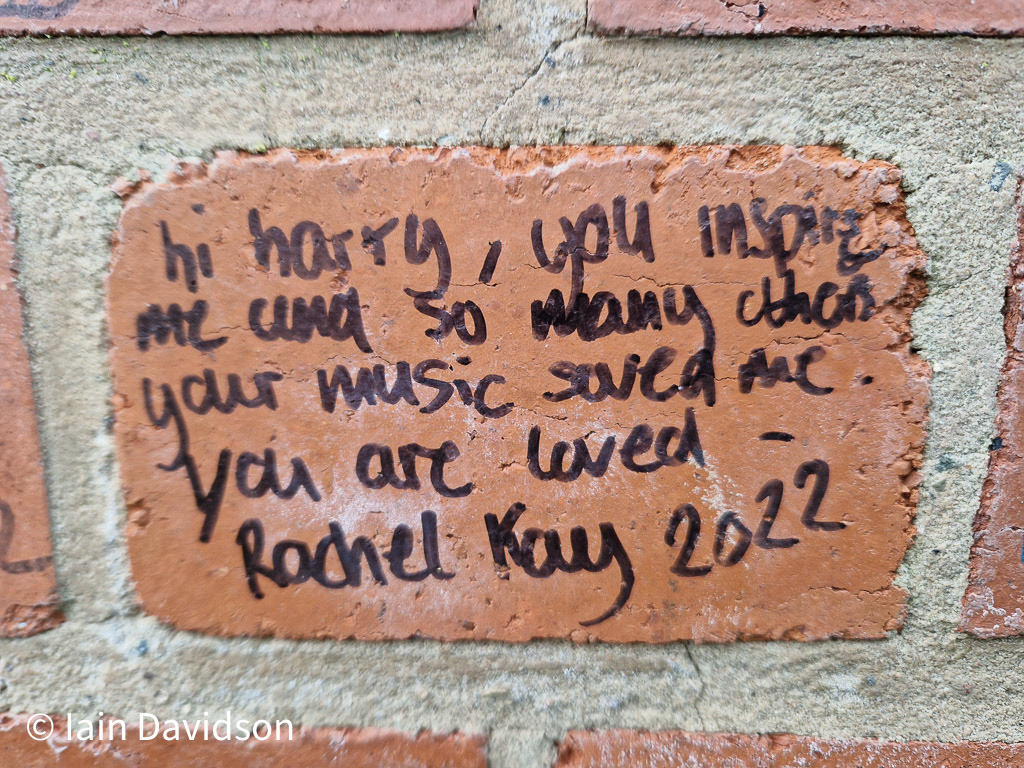 hi harry, you inspire
me and so many others
your music saved me.
you are loved -
Rachel Kay 2022
© Iain Davidson